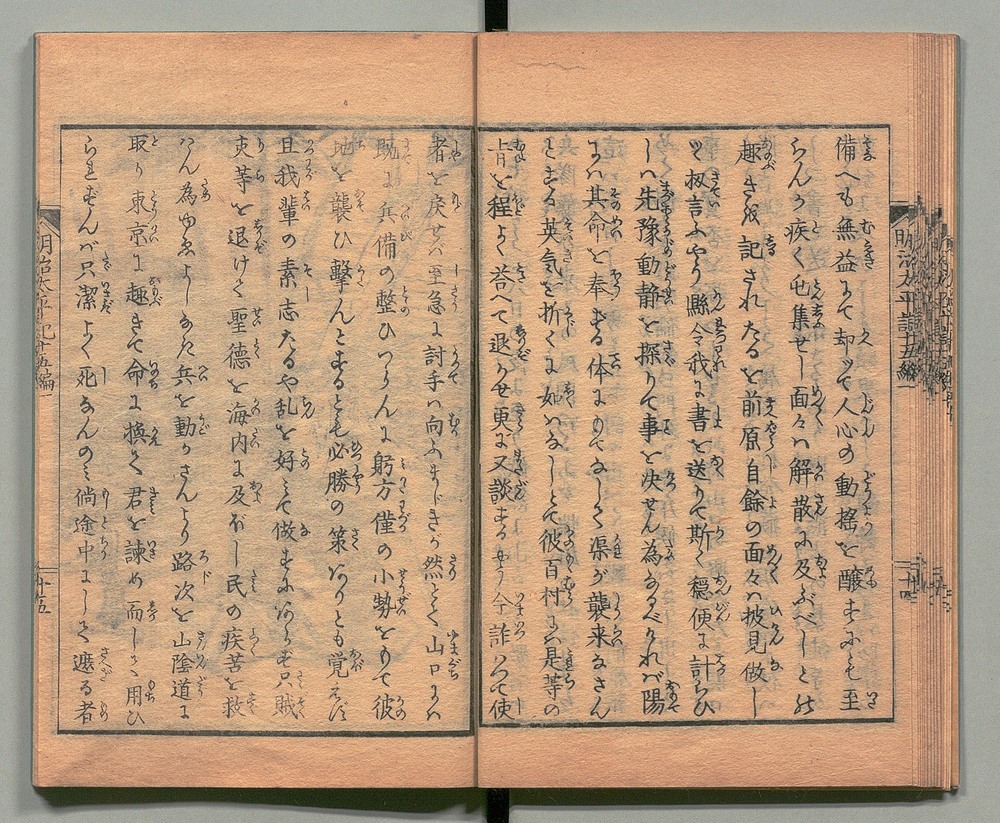 備へも無益にて却つて人心の動揺を醸すにも至
らんか疾く也集せし面々は解散に及ぶべしと
趣きを記されたるを前原自餘の面々は披見做し
扨言ふやう縣令我に書を送りて斯く穏便に計らひ
しは先豫動静を探りて事を决せん為なるべければ陽
には其命を奉ずる体にもてなしく渠が襲来なさん
とする英気を折くに如はなしとて彼百村には是等の
旨を程よく荅へて退かせ更に又談ずるやう今詐つて使
者を戻せバ至急に討手は向ふまじきが然とて山口には
既に兵備の整ひつらんに躬方僅の小勢をもて彼
地を襲ひ撃んとするとも必勝の策ありとも覚えず
且我輩の素志たるや乱を好みて做すにあらず只賊
吏等を退けて聖徳を海内に及ぼし民の疾苦を救
はん為ゆゑよしなき兵を動かさんより路次を山陰道に
取り東京に趣きて命に換て君を諫め而して用ひ
られずんバ只潔よく死なんのミ倘途中にして遮る者
明治太平記十五編一
二十四
明治太平記十五編一
十五